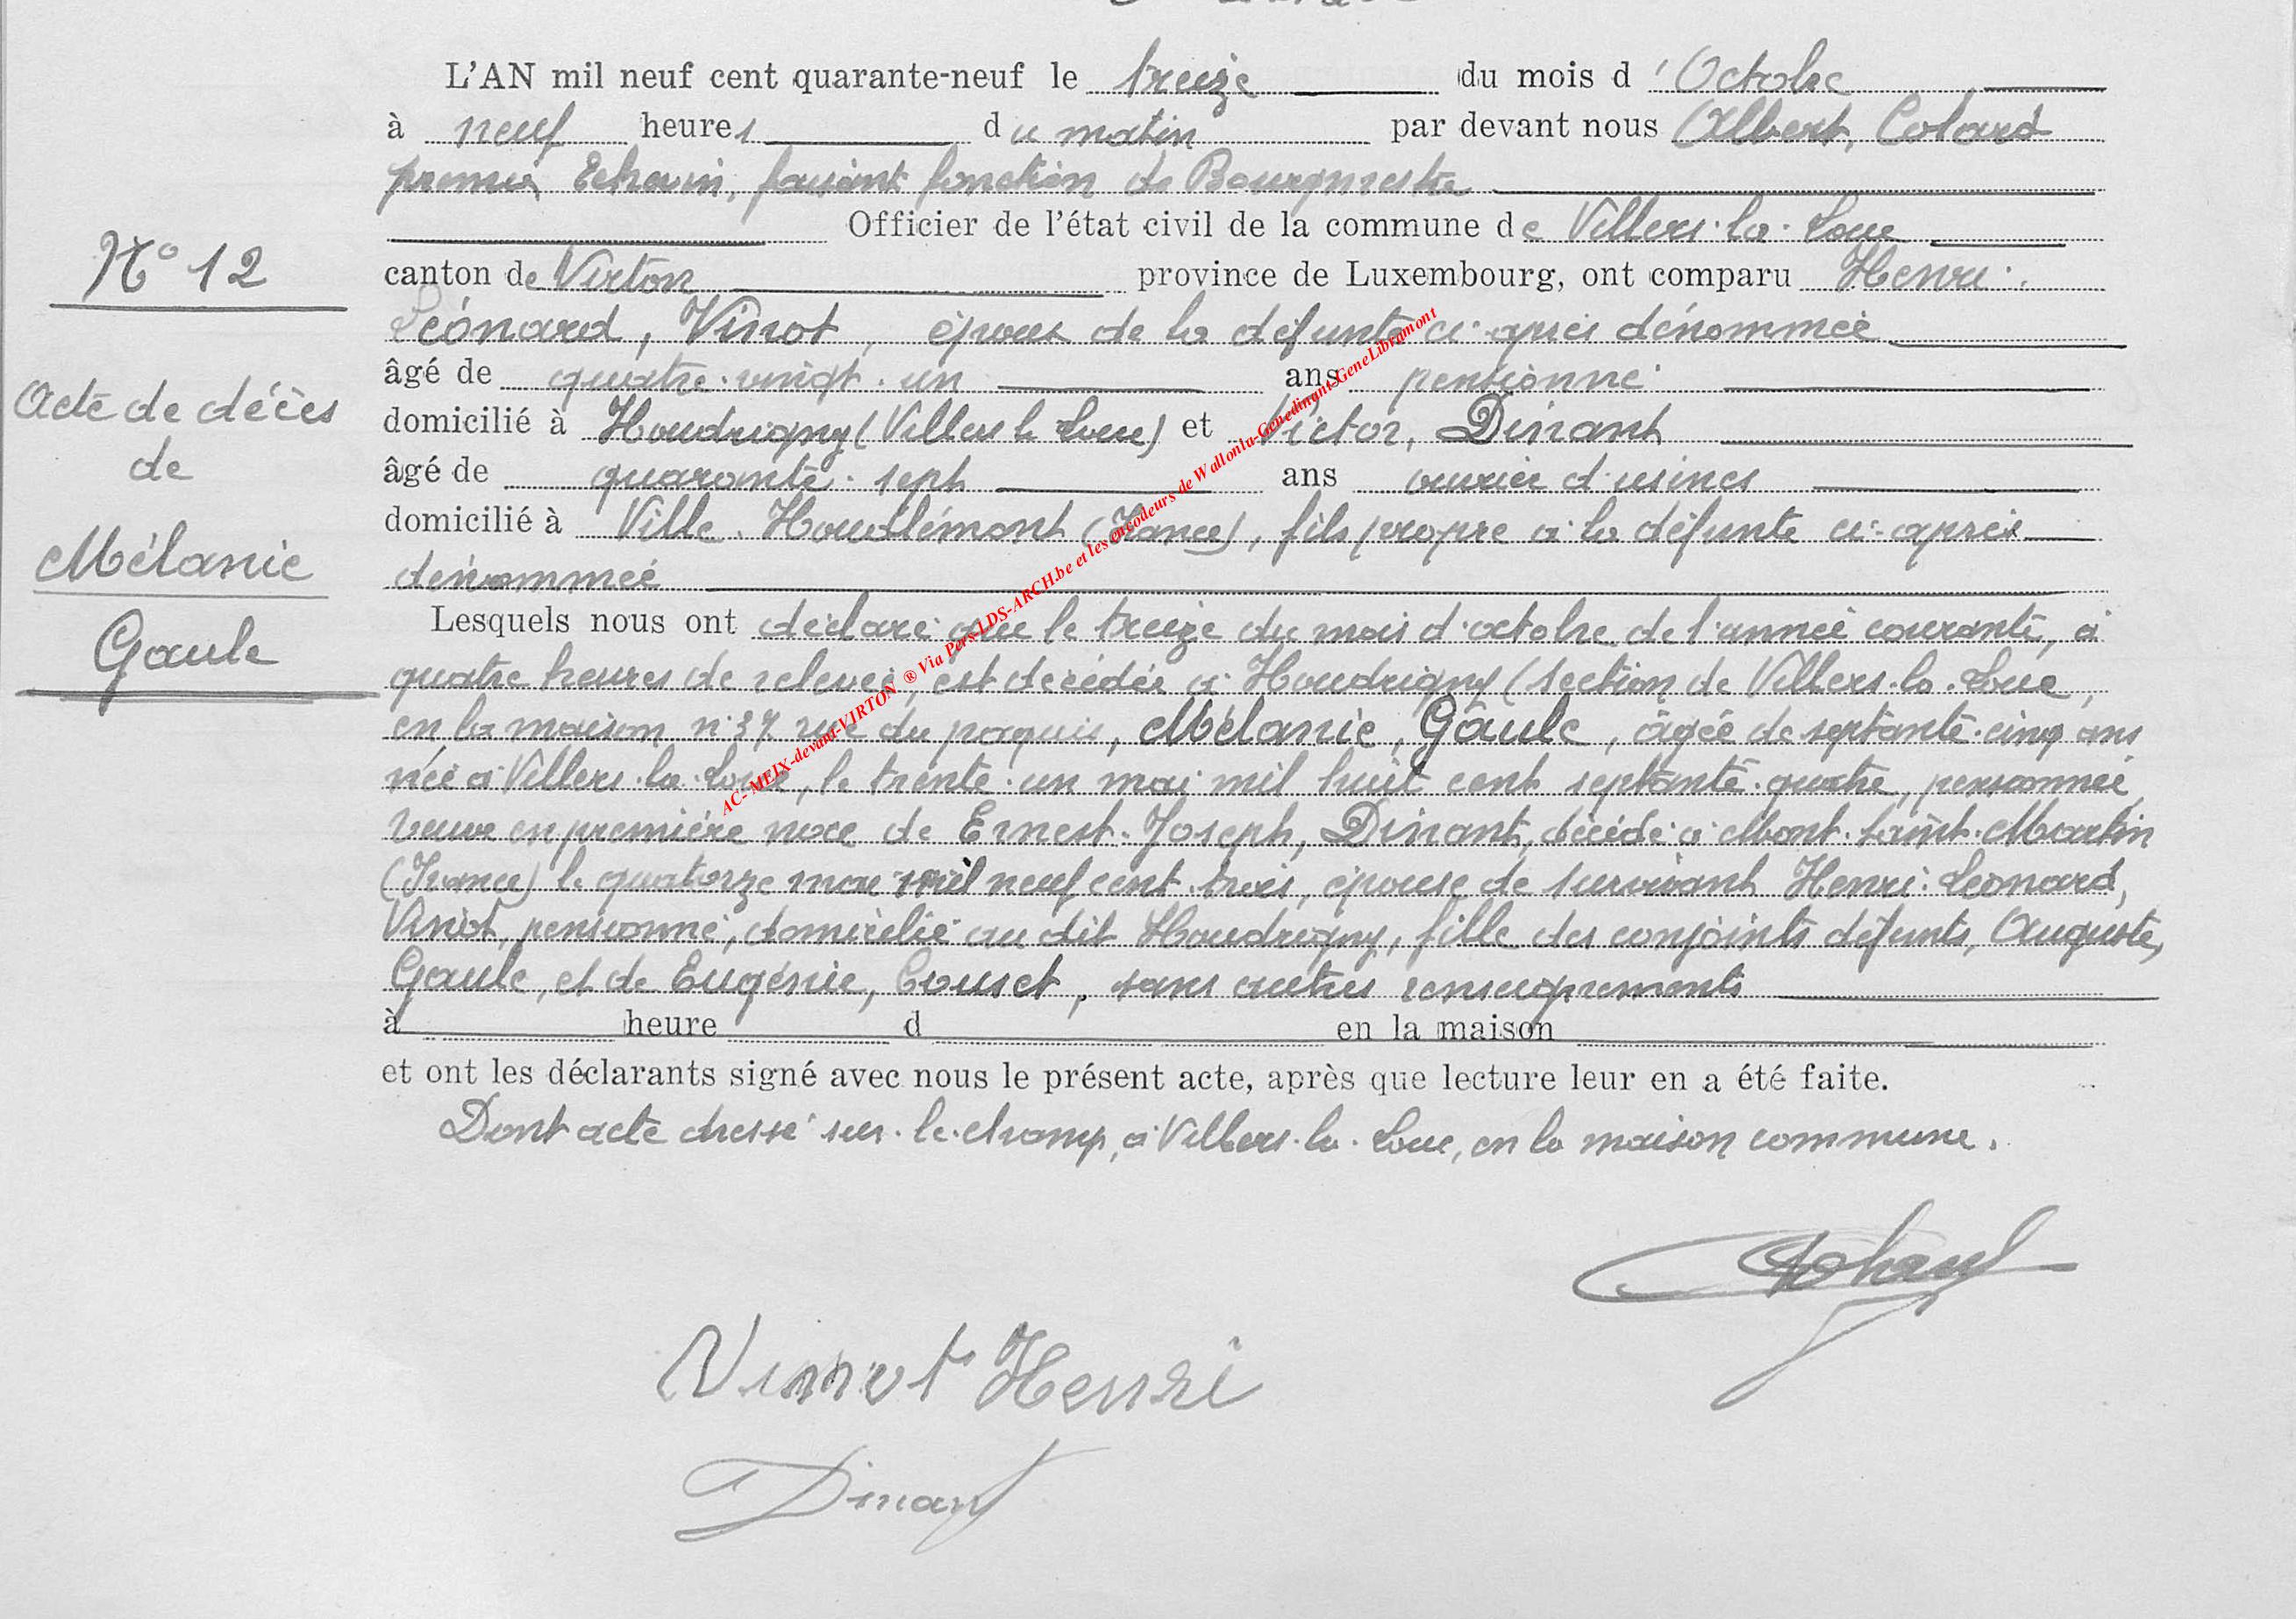 L'AN mil neuf cent quarante-neuf le treize du mois d'Octobre
à neuf heures du matin par devant nous Albert, Colard
premier Echevin, faisant fonction de Bourgmestre
Officier de l'état civil de la commune de Villers-la-Loue
N° 12
canton de Virton province de Luxembourg, ont comparu Henri-
Léonard, Vinot, époux de la défunte ci-après dénommée
âgé de quatre-vingt-un ans pensionné
Acte de décès
domicilié à Houdrigny (Villers la Loue) et Victor, Dinant
de
âgé de quarante-sept ans ouvrier d'usines
domicilié à Ville-Houdlémont (France), fils propre à la défunte ci-après
Mélanie
dénommée
Gaule
Lesquels nous ont déclaré que le treize du mois d'octobre de l'année courante, à
quatre heures de relevée, est décédée à Houdrigny (section de Villers-la-Loue,
en la maison n° 37 rue du paquis, Mélanie, Gaule, âgée de septante-cinq ans
née à Villers-la-Loue, le trente-un mai mil huit cent septante-quatre, pensionnée,
veuve en première noce de Ernest-Joseph, Dinant, décédé à Mont-Saint-Martin
(France) le quatorze mai mil neuf cent trois, épouse de survivant Henri-Léonard,
Vinot, pensionné, domicilié au dit Houdrigny, fille des conjoints défunts, Auguste,
Gaule, et de Eugénie, Couset, sans autres renseignements
à heure d en la maison
et ont les déclarants signé avec nous le présent acte, après que lecture leur en a été faite.
Dont acte dressé sur-le-champ, à Villers-la-Loue, en la maison commune.
Vinot Henri
Dinant
AC- MEIX-devant-VIRTON ® Via Pers-LDS-ARCH.be et les encodeurs de Wallonia-Genedinant-GeneLibramont